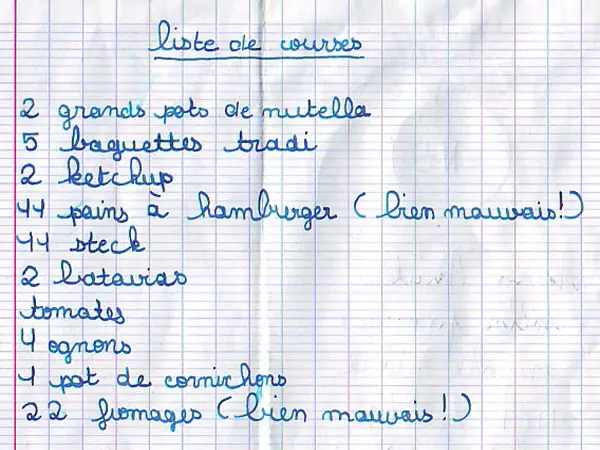 liste de courses
2 grands pots de nutella
5 baguettes tradi
2 ketchup
11 pains à hamburger (bien mauvais!)
11 steck
2 batavias
tomates
4 ognons
1 pot de cornichons
22 fromages (bien mauvais!)